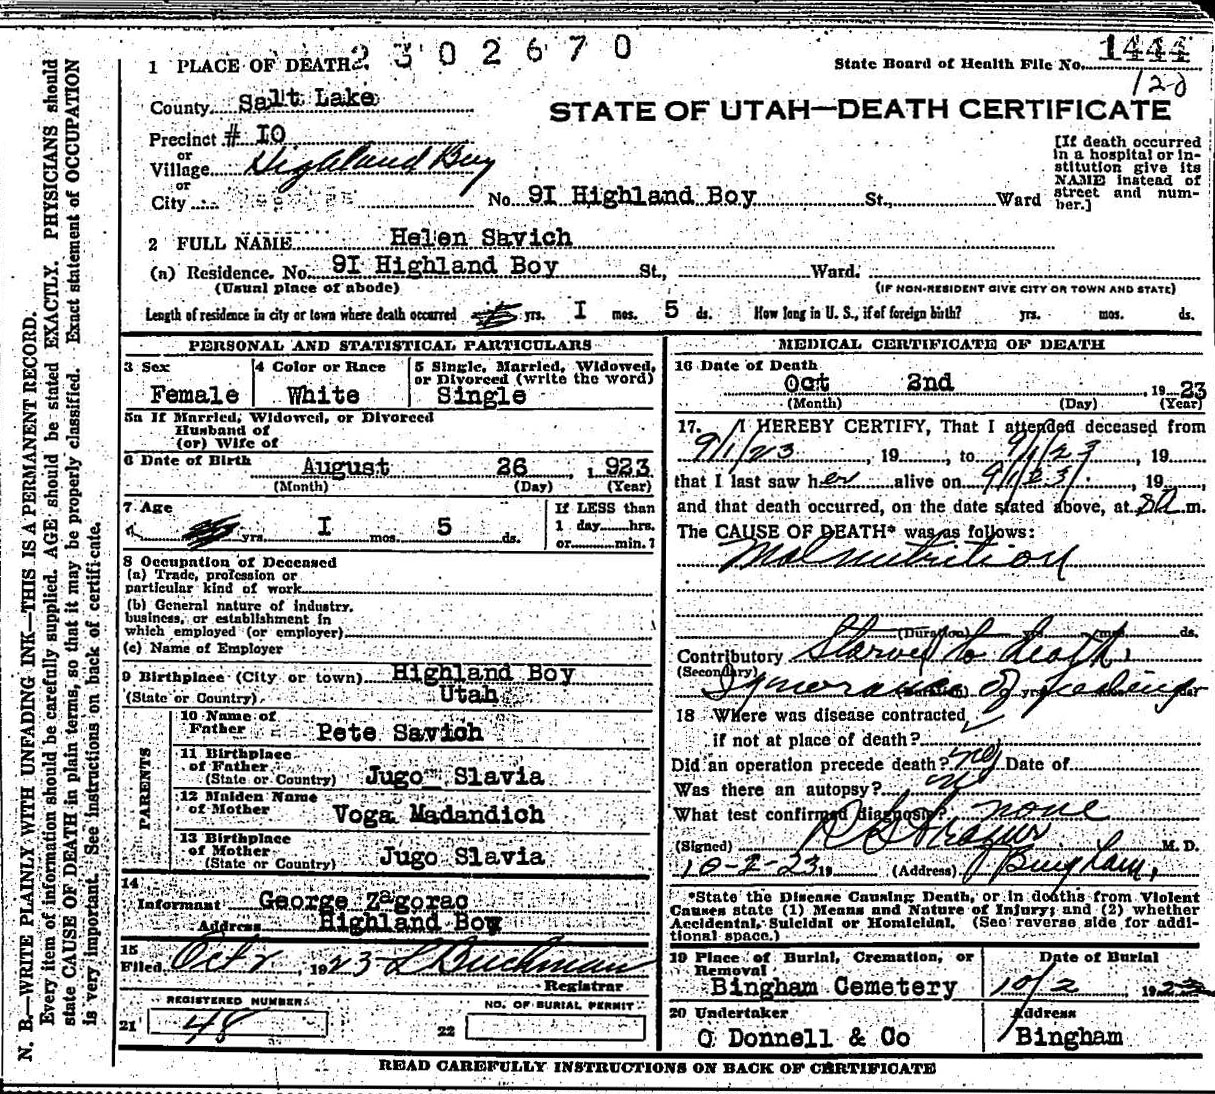 2302670
1 PLACE OF DEATH
State Board of Health File No. 1444
120
County Salt Lake
STATE OF UTAH—DEATH CERTIFICATE
Precinct # IO
or
Village Highland Boy
or
City
No. 9I Highland Boy St., Ward
[If death occurred in a hospital or institution give its NAME instead of street and number.]
2 FULL NAME Helen Savich
(a) Residence. No. 9I Highland Boy St., Ward.
(Usual place of abode) (IF NON-RESIDENT GIVE CITY OR TOWN AND STATE)
Length of residence in city or town where death occurred yrs. I mos. 5 ds. How long in U. S., if of foreign birth? yrs. mos. ds.
PERSONAL AND STATISTICAL PARTICULARS
3 Sex
Female
4 Color or Race
White
5 Single, Married, Widowed,
or Divorced (write the word)
Single
5a If Married, Widowed, or Divorced
Husband of
(or) Wife of
6 Date of Birth August 26 , 1923
(Month) (Day) (Year)
7 Age
yrs. I mos. 5 ds.
If LESS than
1 day hrs.
or min.?
8 Occupation of Deceased
(a) Trade, profession or
particular kind of work
(b) General nature of industry,
business, or establishment in
which employed (or employer)
(c) Name of Employer
9 Birthplace (City or town) Highland Boy
(State or Country) Utah
PARENTS
10 Name of
Father Pete Savich
11 Birthplace
of Father
(State or Country) Jugo Slavia
12 Maiden Name
of Mother Voga Madandich
13 Birthplace
of Mother
(State or Country) Jugo Slavia
14
Informant George Zagorac
Address Highland Boy
15
Filed Oct 2, 1923 L Buchman
Registrar
REGISTERED NUMBER
21 48
NO. OF BURIAL PERMIT
22
MEDICAL CERTIFICATE OF DEATH
16 Date of Death
Oct 2nd , 1923
(Month) (Day) (Year)
17. I HEREBY CERTIFY, That I attended deceased from
9/1/23, 19 , to 9/1/23, 19
that I last saw her alive on 9/1/23, 19 ,
and that death occurred, on the date stated above, at 8 A m.
The CAUSE OF DEATH* was as follows:
Malnutrition
(Duration) yrs. mos. ds.
Contributory Starved to death,
(Secondary) Ignorance of feeding
18 Where was disease contracted,
if not at place of death?
Did an operation precede death? no Date of
Was there an autopsy? no
What test confirmed diagnosis? none
(Signed) M. D.
10-2-23 19 (Address) Bingham,
*State the Disease Causing Death, or in deaths from Violent
Causes state (1) Means and Nature of Injury; and (2) whether
Accidental, Suicidal or Homicidal. (See reverse side for addi-
tional space.)
19 Place of Burial, Cremation, or
Removal
Bingham Cemetery
Date of Burial
10/2, 1923
20 Undertaker
O Donnell & Co
Address
Bingham
READ CAREFULLY INSTRUCTIONS ON BACK OF CERTIFICATE
N. B.—WRITE PLAINLY WITH UNFADING INK—THIS IS A PERMANENT RECORD.
Every item of information should be carefully supplied. AGE should be stated EXACTLY. PHYSICIANS should
state CAUSE OF DEATH in plain terms, so that it may be properly classified. Exact statement of OCCUPATION
is very important. See instructions on back of certificate.